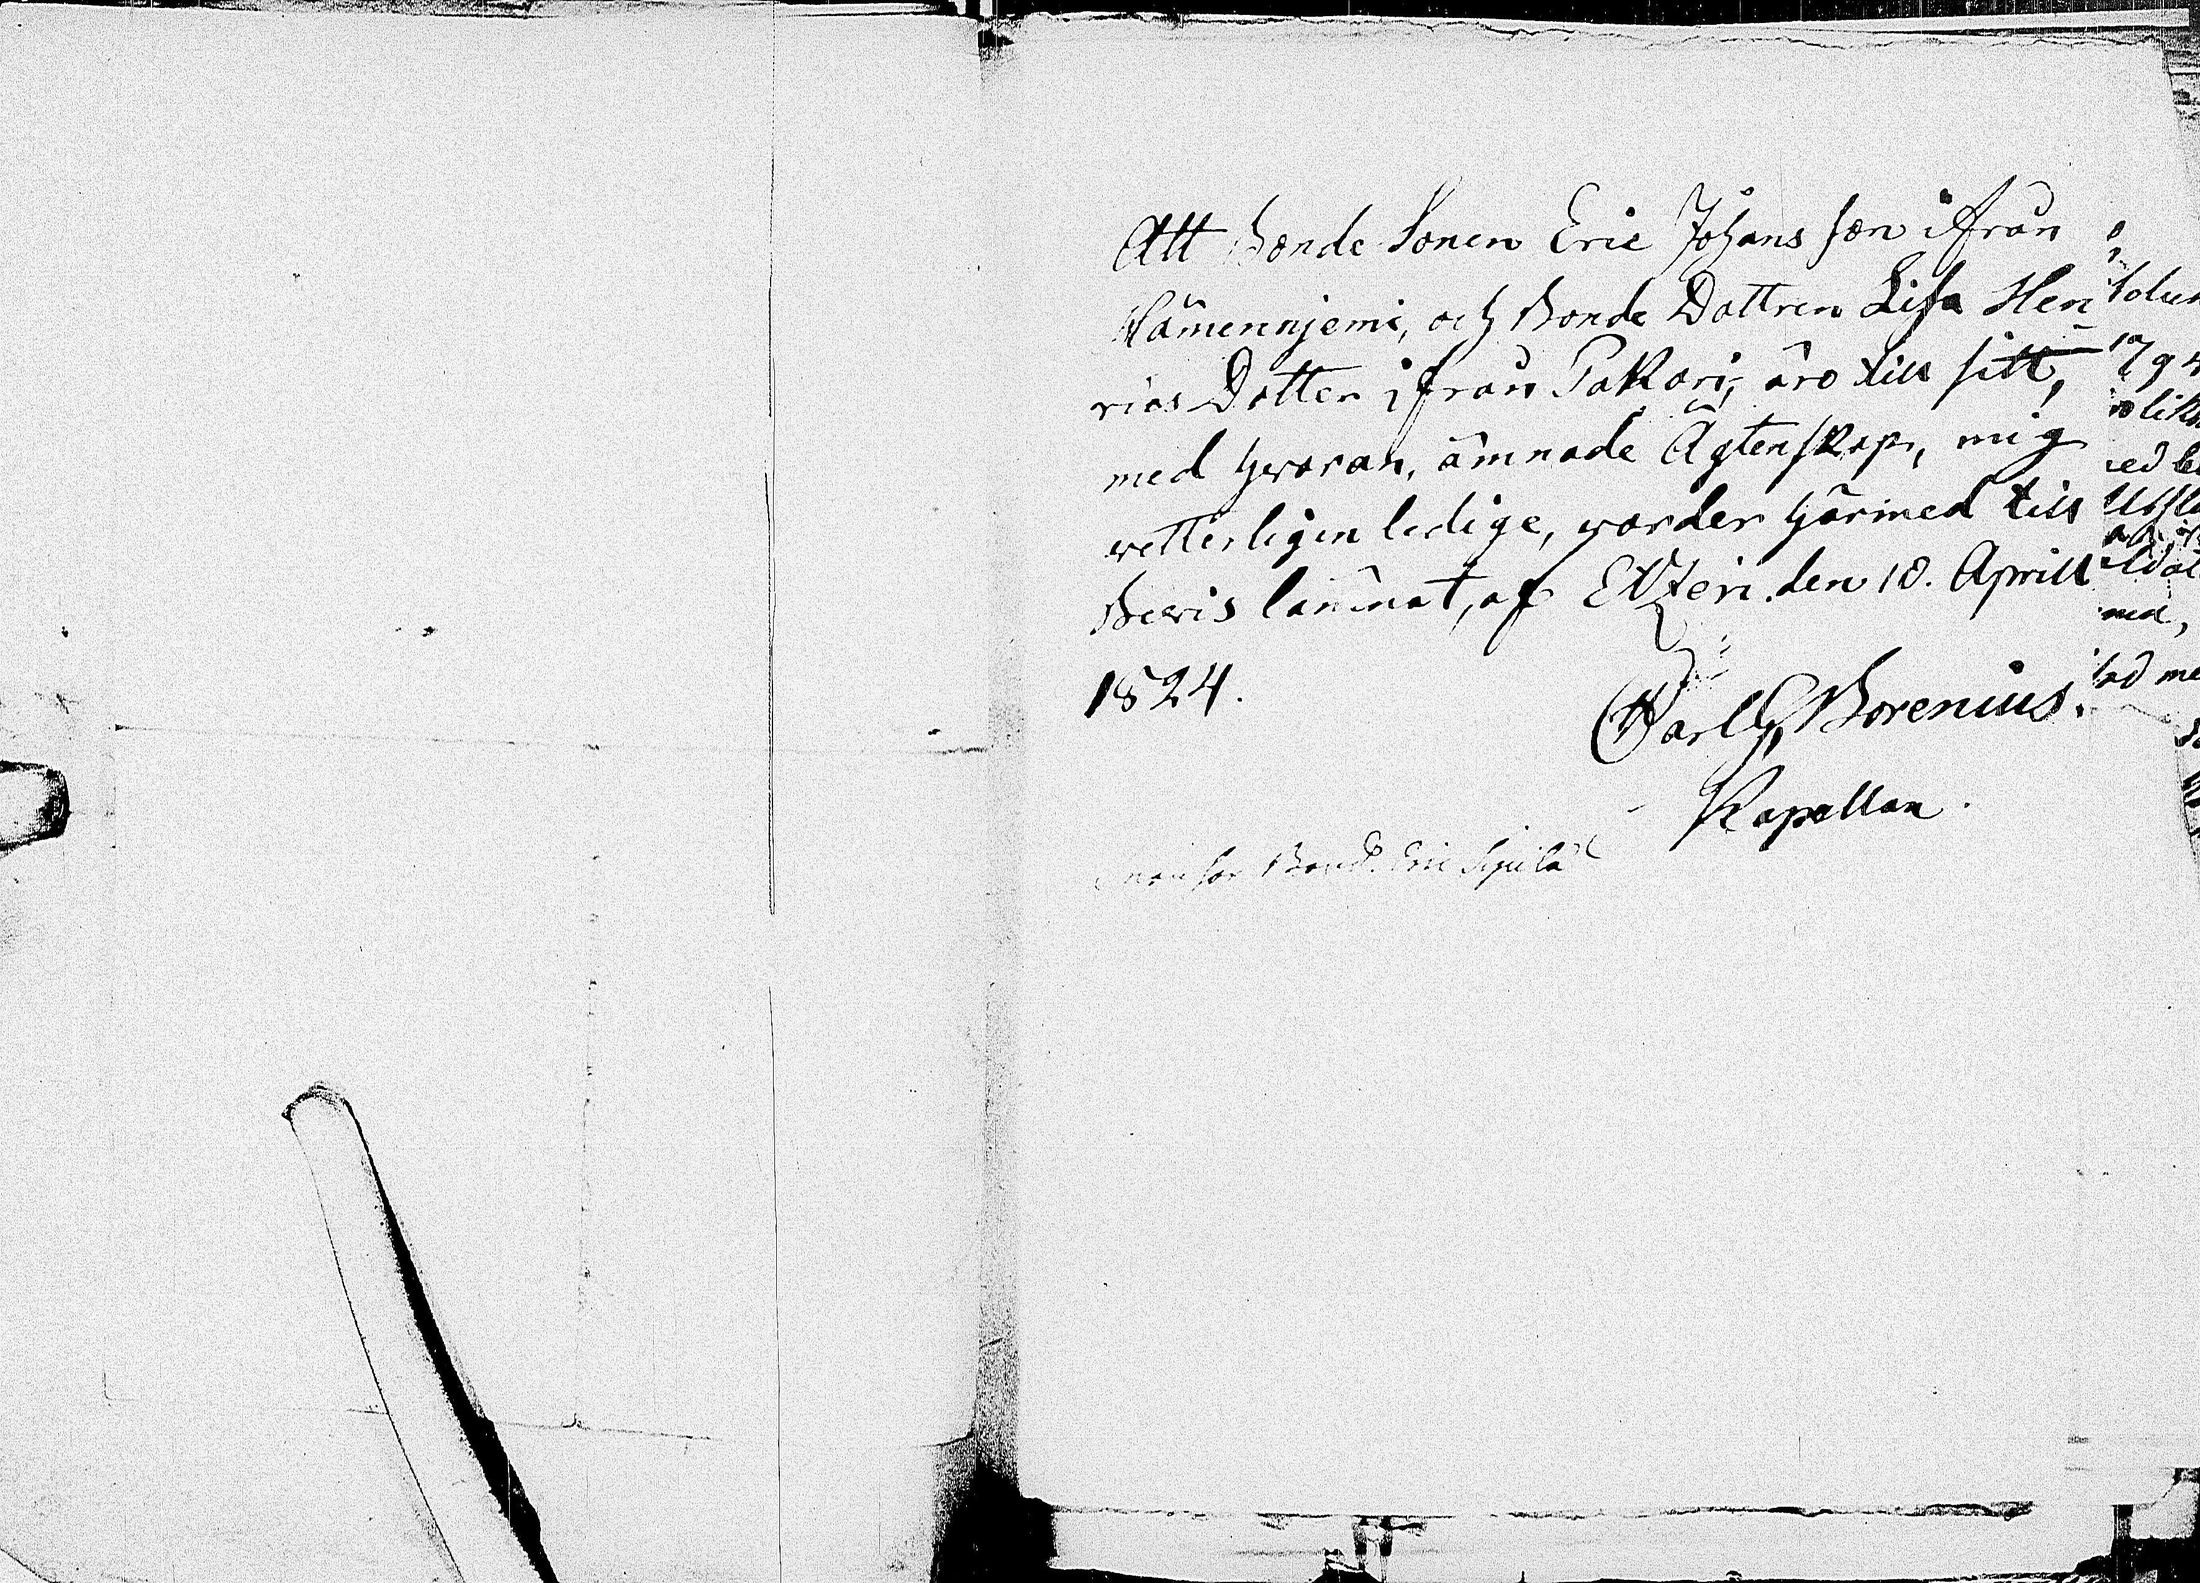 Att Bonde Sonen Eric Johans son ifrån
Hämenniemi, och Bonde Dottren Lisa Hen
rics Dotter ifrån Pakari, äro till sitt,
med hvaran, ämnade Ägtenskap, mig
vetterligen ledige, varder härmed till
Bevis lämnat, af Etzeri den 18. Aprill
1824.
Carl G. Borenius.
Kapellan.
Bond. Eric Sipilä
1794